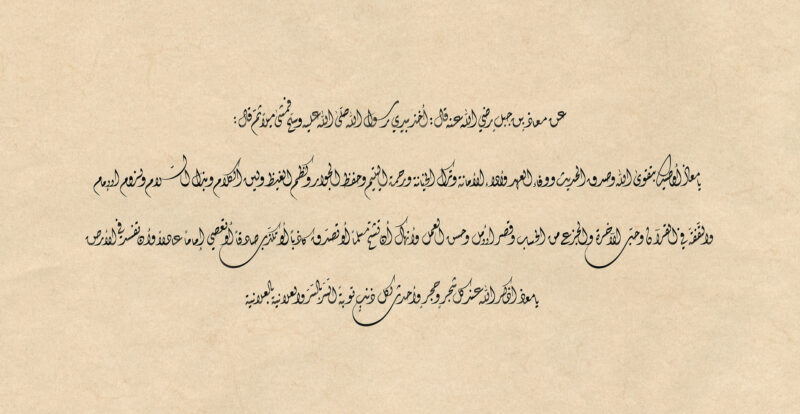 عن معاذ بن جبل رضي الله عنه قال: أخذ بيدي رسول الله صلى الله عليه وسلم فمشى ميلاً ثم قال:
يا معاذ أوصيك بتقوى الله وصدق الحديث ووفاء العهد وأداء الأمانة وترك الخيانة ورحمة اليتيم وحفظ الجوار وكظم الغيظ ولين الكلام وبذل السلام ولزوم الإمام
والتفقه في القرآن وحب الآخرة والجزع من الحساب وقصر الأمل وحسن العمل وأنهاك أن تشتم مسلماً أو تصدق كاذباً أو تكذب صادقاً أو تعصي إماماً عادلاً وأن تفسد في الأرض
يا معاذ اذكر الله عند كل شجر وحجر وأحدث لكل ذنب توبة السر بالسر والعلانية بالعلانية